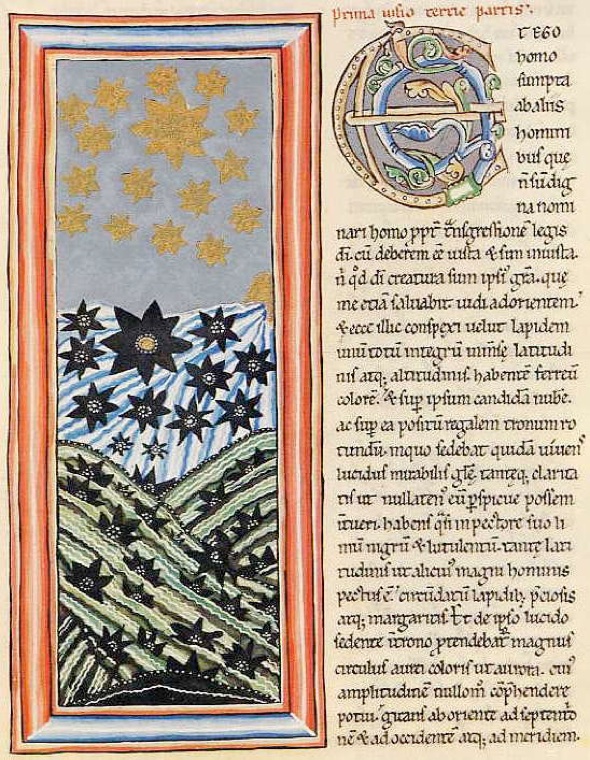 Prima uisio tercie partis.
ET EGO
homo
sumpta
abaliis
homini
bus que
n̄ sū dig
na nomi
nari homo ꝓpt̄ t̃nsgressionē legis
dī. cū deberem eē iusta & sum iniusta.
n̄ qd̄ dī creatura sum ipsiꝰ gr̄a. que
me etiā saluabit. uidi adorientem.
& ecce illic conspexi uelut lapidem
unū totū integrū īmēse latitudi
nis atq; altitudinis. habentē ferreū
colorē. & sup̄ ipsum candidā nubē.
ac sup̄ ea positū regalem tronum ro
tundū. inquo sedebat quidā uiuens
lucidus mirabilis glę. tantęq; clarita
tis ut nullatenꝰ eū ꝑspicue possem
intueri. habens q̄si in pectore suo li
mū nigrū & lutulentū. tantę lati
tudinis ut alicuiꝰ magni hominis
pectus ē. circūdatū lapidib; p̄ciosis
atq; margaritis. Et de ipso lucido
sedente ītrono ꝓtendebat᷑ magnus
circulus aurei coloris ut aurora. cuiꝰ
amplitudinē nullom̊ cōp̄hendere
potui. girans ab oriente ad septentrio
nē & ad occidentē atq; ad meridiem.